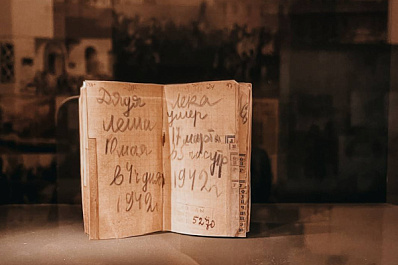 Дядя
Леша
10 мая
в 4 ч дня
1942
Лека
умер
17 марта
в 5 часутр
1942 г
5270